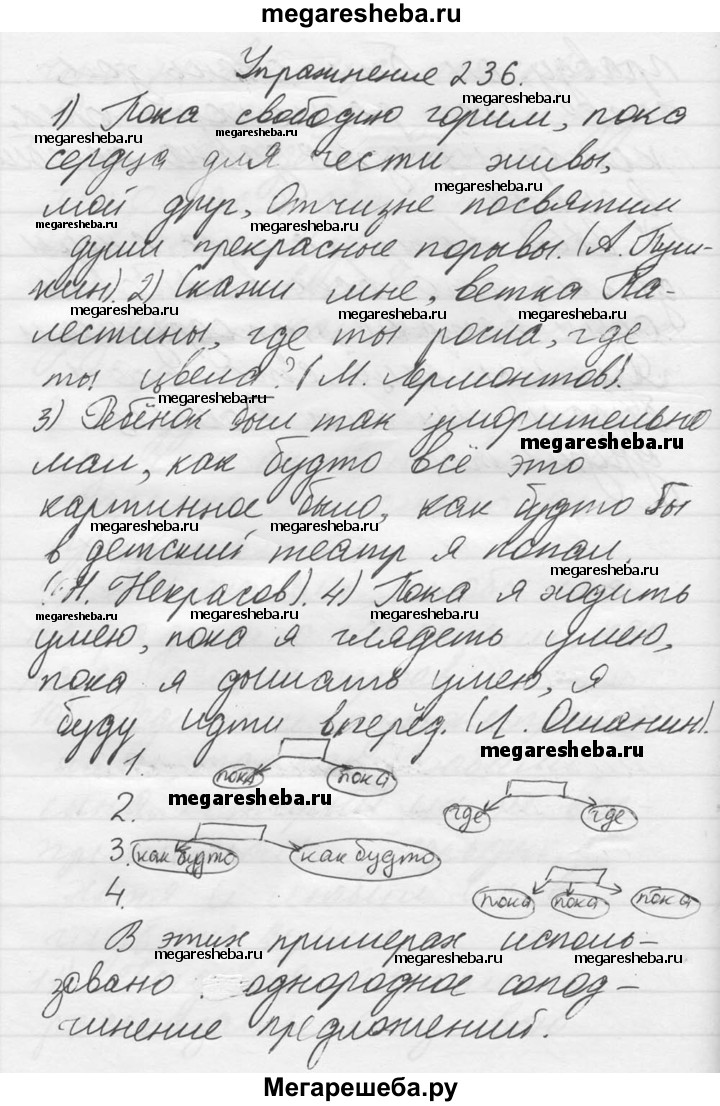 megaresheba.ru
Упражнение 236.
1) Пока свободою горим, пока
megaresheba.ru
megaresheba.ru
сердца для чести живы,
megaresheba.ru
мой друг, Отчизне посвятим
megaresheba.ru
megaresheba.ru
души прекрасные порывы. (А. Пуш-
кин). 2) Скажи мне, ветка Па-
megaresheba.ru
megaresheba.ru
лестины, где ты росла, где
ты цвела? (М. Лермонтов).
megaresheba.ru
3) Ребёнок был так уморительно
megaresheba.ru
мал, как будто всё это
картинное было, как будто бы
megaresheba.ru
megaresheba.ru
в детский театр я попал.
megaresheba.ru
(Н. Некрасов). 4) Пока я ходить
megaresheba.ru
megaresheba.ru
умею, пока я глядеть умею,
пока я дышать умею, я
буду идти вперёд. (Л. Ошанин).
megaresheba.ru
1. пока пока
megaresheba.ru
2. где где
3. как будто как будто
4. пока пока пока
В этих примерах исполь-
megaresheba.ru
зовано однородное сопод-
megaresheba.ru
чинение предложений.
Мегарешеба.ру